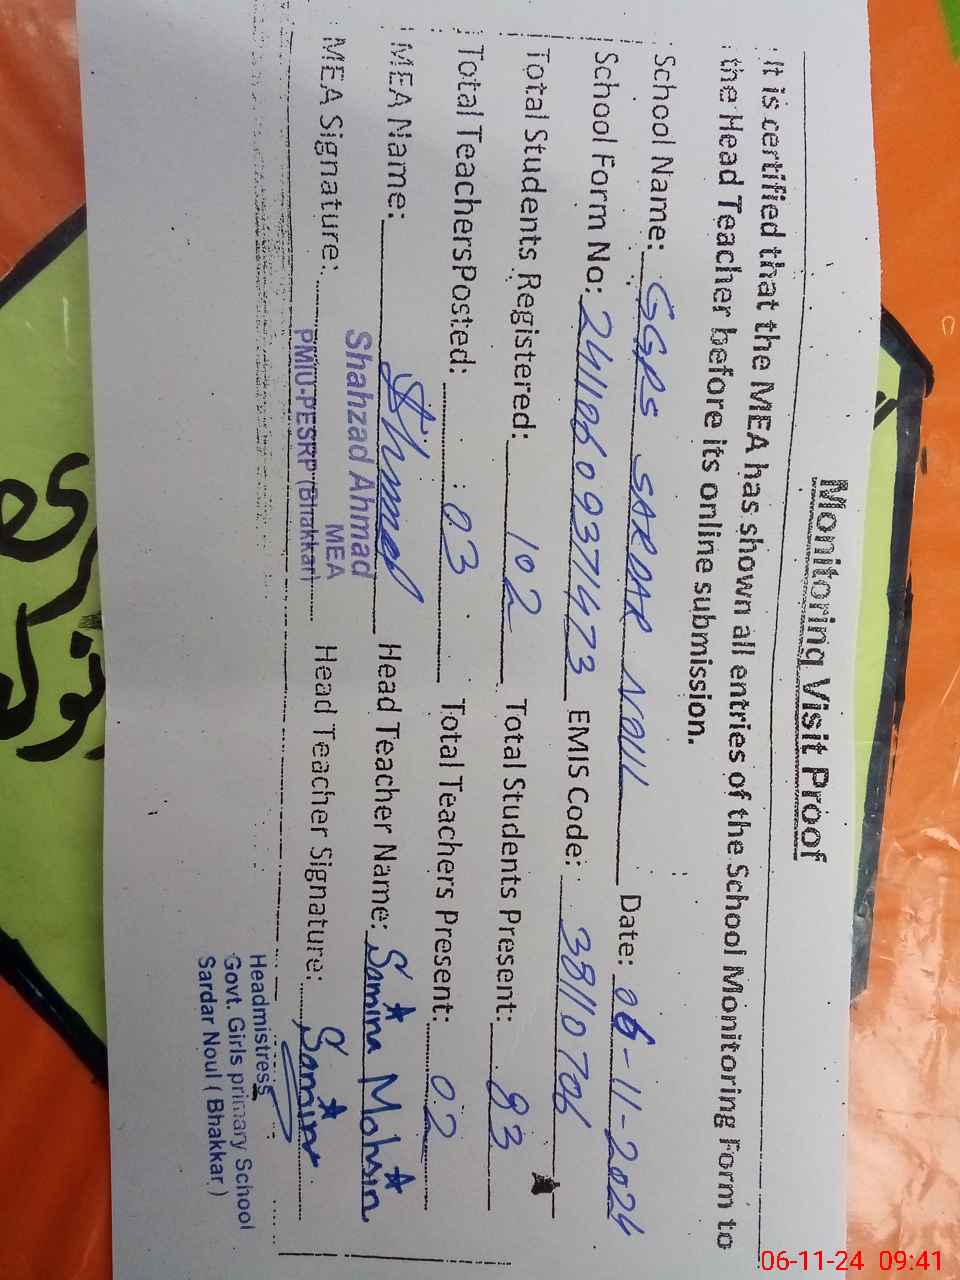 Monitoring Visit Proof
It is certified that the MEA has shown all entries of the School Monitoring Form to
the Head Teacher before its online submission.
School Name: GGPS SARDAR NOUL Date: 06-11-2024
School Form No: 24110609371473 EMIS Code: 38110706
Total Students Registered: 102 Total Students Present: 83
Total TeachersPosted: 03 Total Teachers Present: 02
MEA Name: Ahmad Head Teacher Name: Samina Mohsin
MEA Signature: Head Teacher Signature: Samina
Shahzad Ahmad
MEA
PMIU-PESRP (Bhakkar)
Headmistress
Govt. Girls primary School
Sardar Noul ( Bhakkar )
06-11-24 09:41